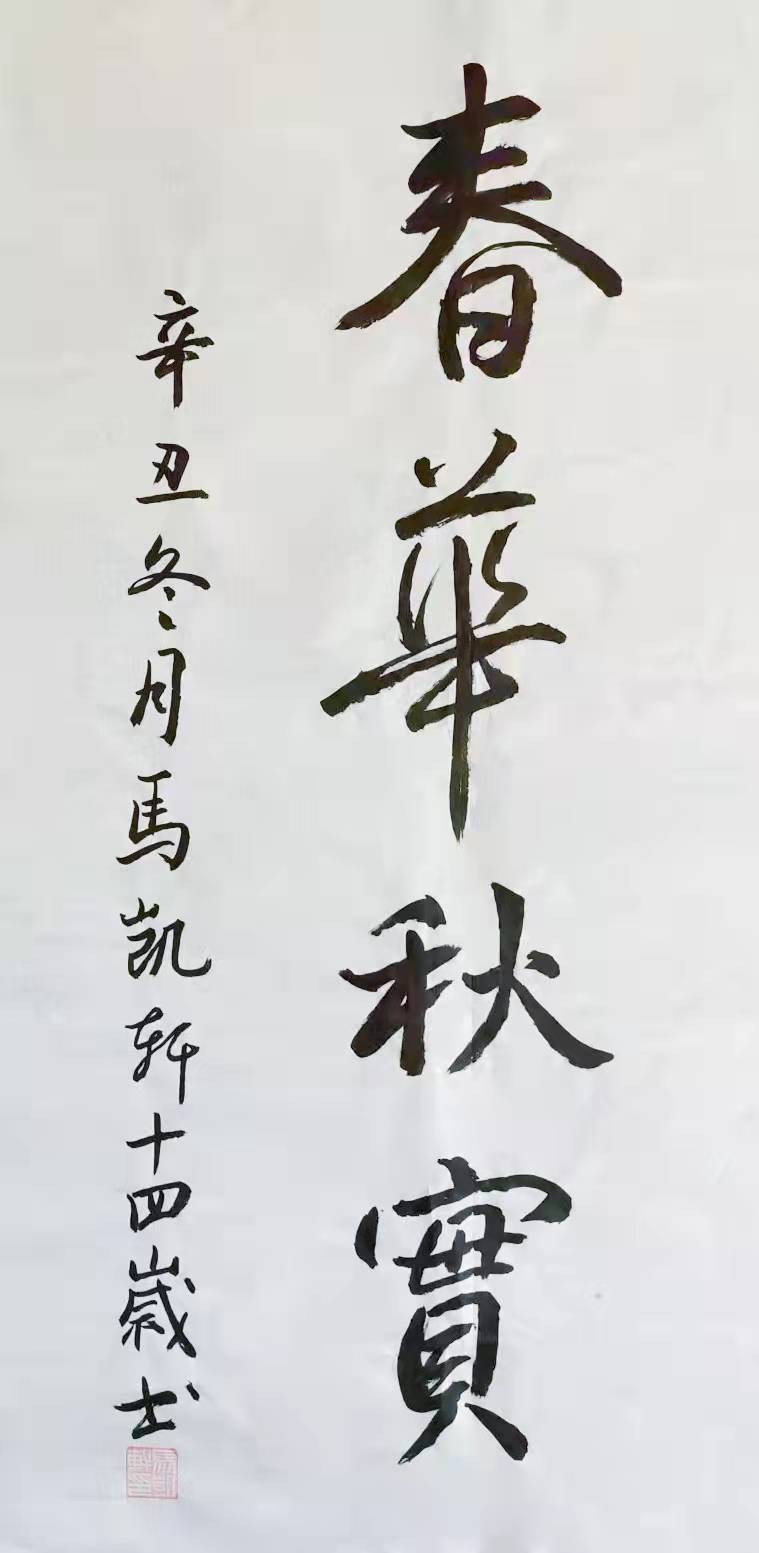 春華秋實
辛丑冬月馬凱軒十四歲书